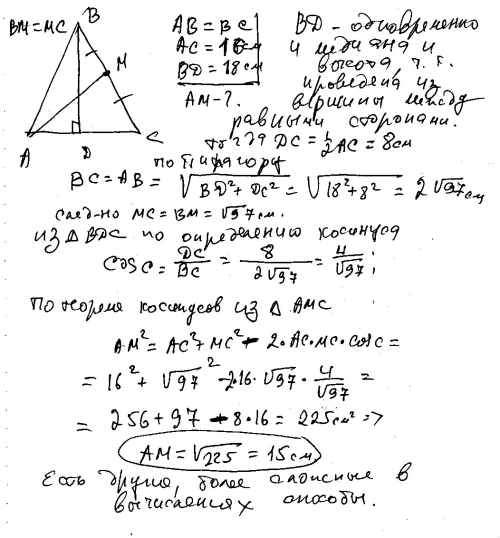 BM=MC
B
M
A
D
C
AB=BC
AC=16см
BD=18см
AM-?
BD - одновременно
и медиана и
высота, т. к.
проведена из
вершины между
равными сторонами.
тогда DC=½AC=8см
по Пифагору
BC=AB=√BD²+DC²=√18²+8²=2√97см
след-но MC=BM=√97см.
из △BDC по определению косинуса
cosC=DC/BC=8/2√97=4/√97;
По теореме косинусов из △ AMC
AM²=AC²+MC²-2·AC·MC·cosC=
=16²+√97²-2·16·√97·4/√97=
=256+97-8·16=225см²=>
AM=√225=15см
Есть другие, более сложные в
вычислениях способы.